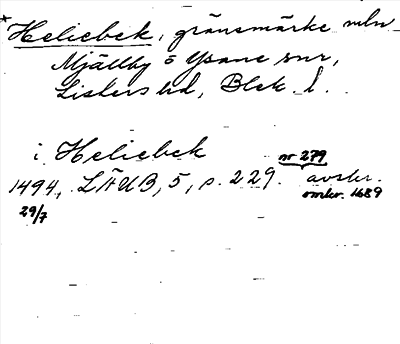 *Heliebek, gränsmärke mln
Mjällby o Ysane snr,
Listers hd, Blek. l.
i Heliebek
nr 279
1494, LÄUB, 5, s. 229. avskr.
29/7 omkr. 1689